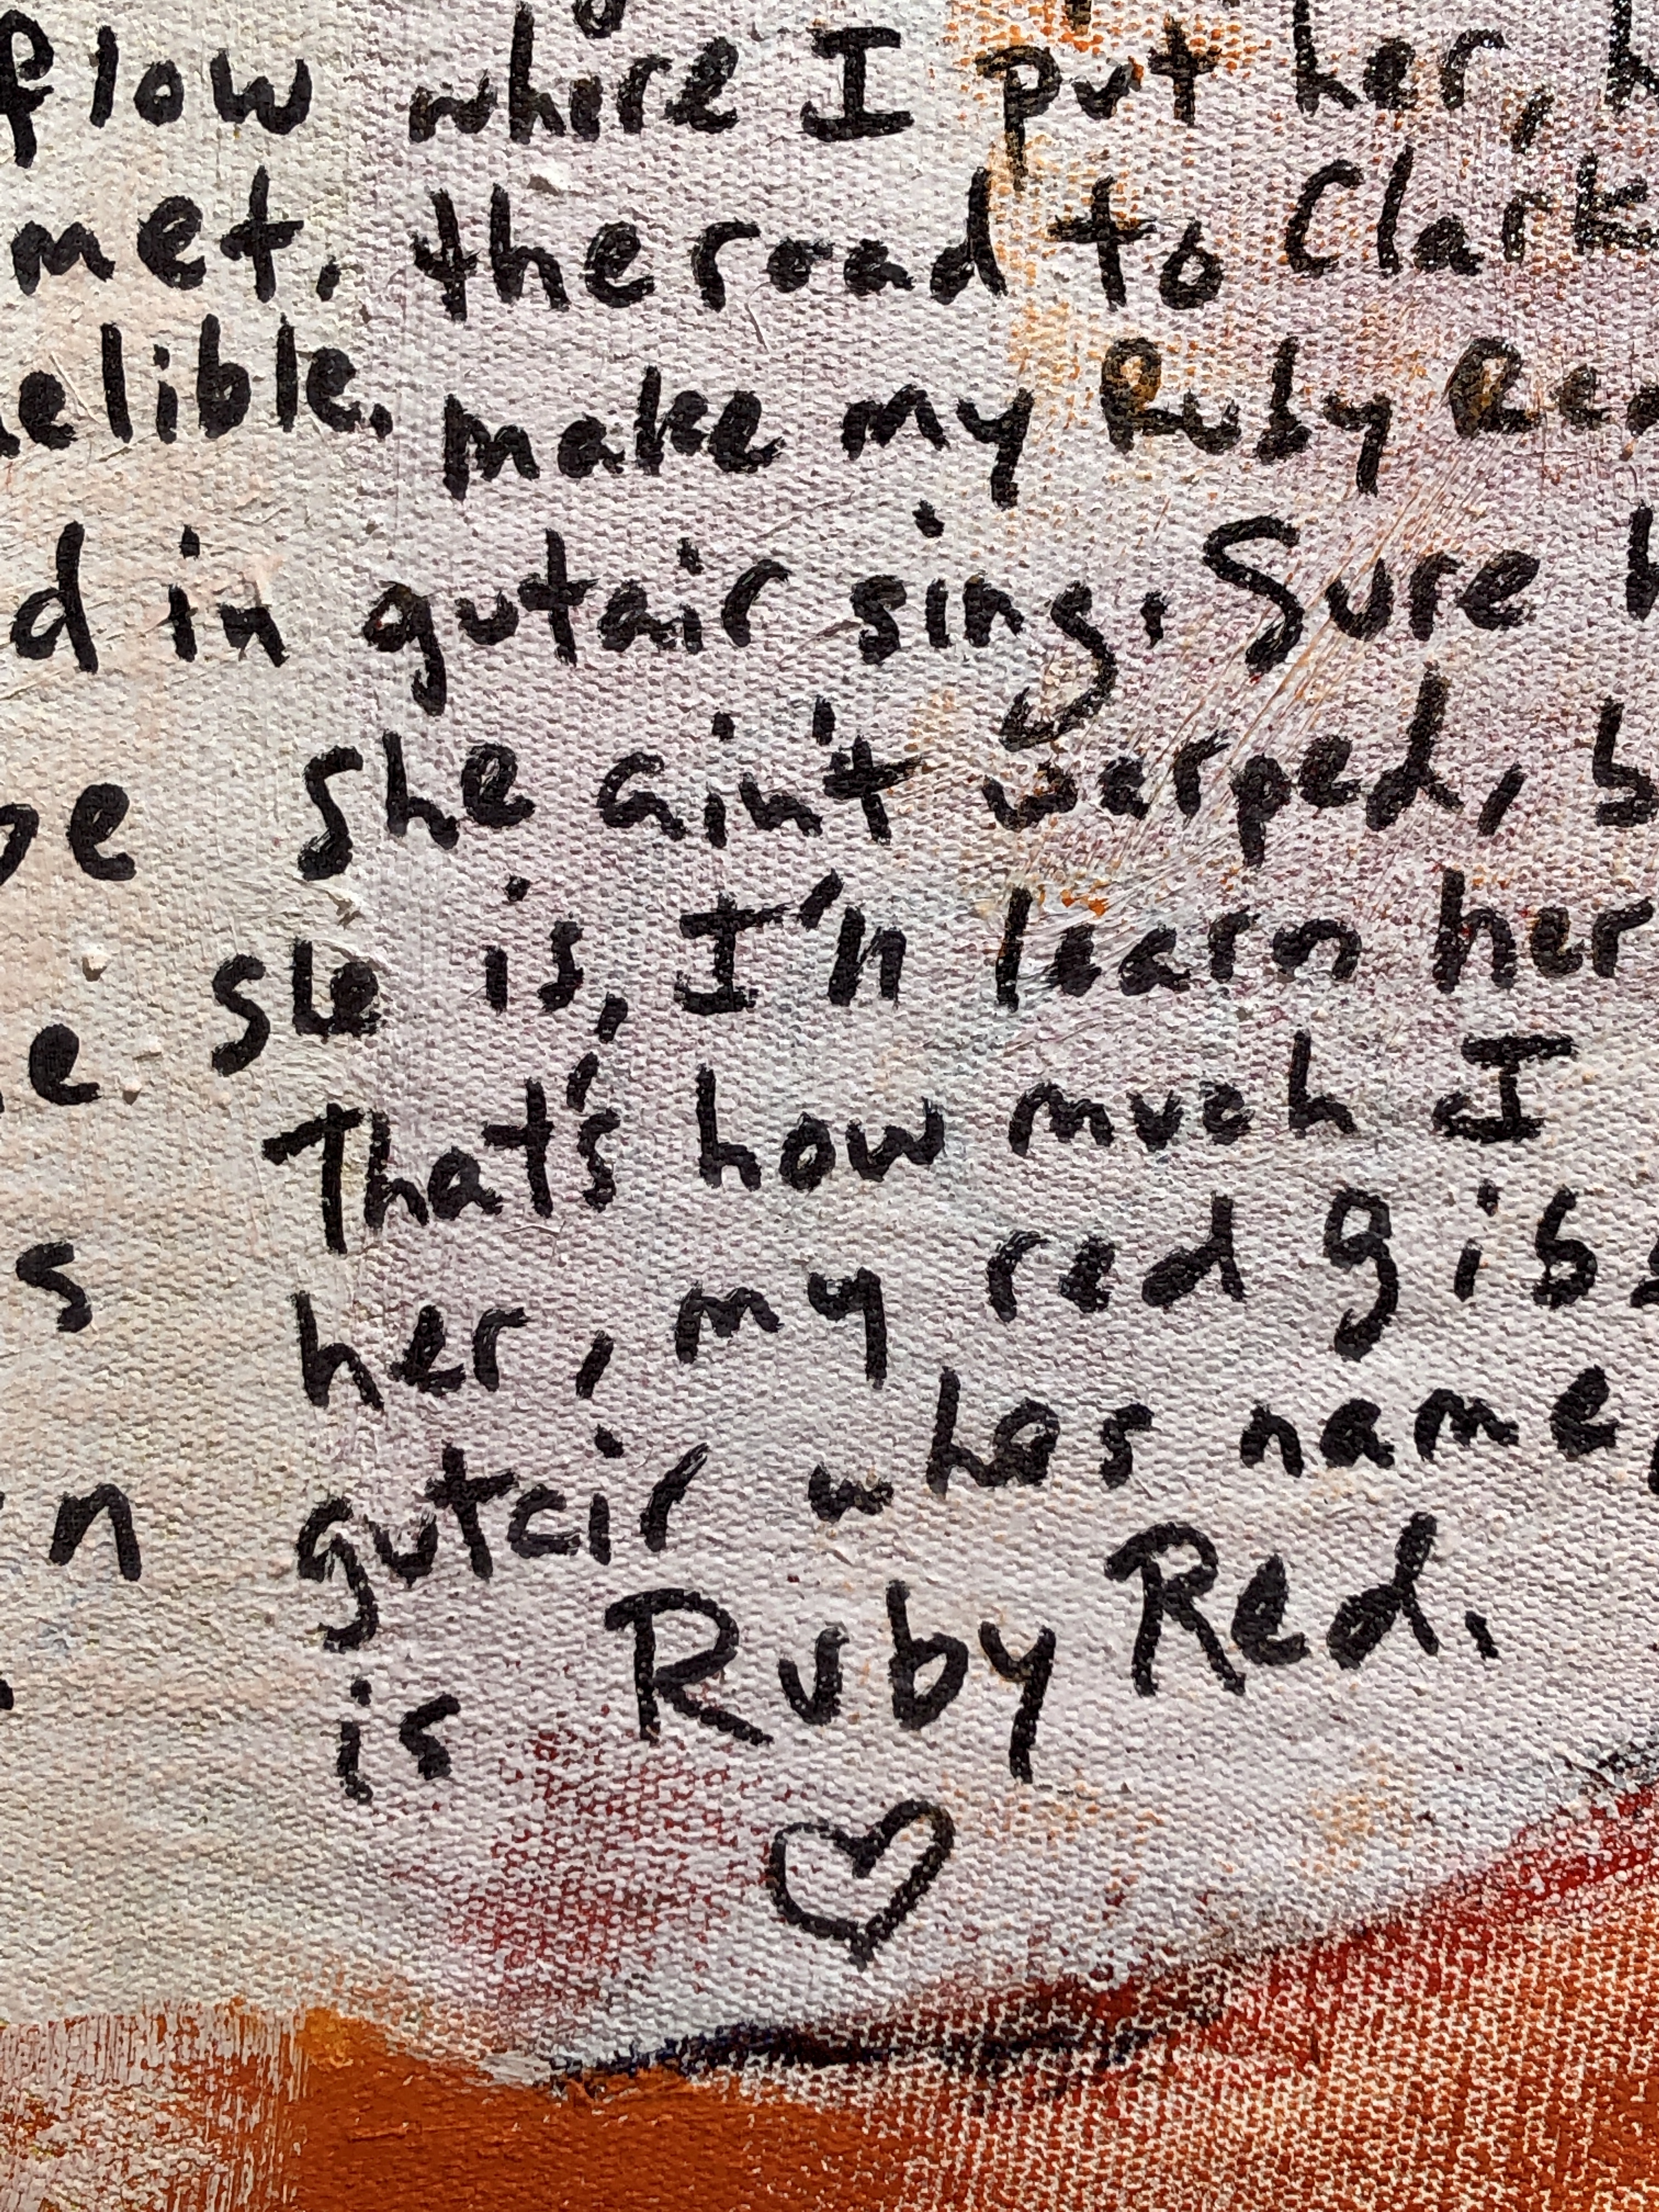 flow where I put her,
met, the road to Clark
elible. make my Ruby Re
d in gutair sing. Sure
be she ain't warped, b
e sle is, I'll learn her
That's how much I
s her, my red gibs
n gutair has name,
is Ruby Red.